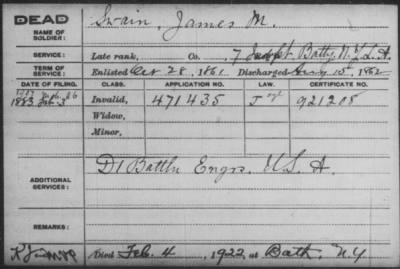 DEAD Swain, James M.
NAME OF SOLDIER:
SERVICE: Late rank, Co. 7 Indpt. Batty, N.Y.L.A.
TERM OF SERVICE: Enlisted Oct 28, 1861 Discharged Aug 15, 1862
DATE OF FILING. CLASS. APPLICATION NO. LAW. CERTIFICATE NO.
1883 Feb. 3 Invalid, 471435 921208
Widow,
Minor,
ADDITIONAL SERVICES: D1 Battln Engrs. U.S.A.
REMARKS:
Died Feb. 4, 1922, at Bath, N.Y.